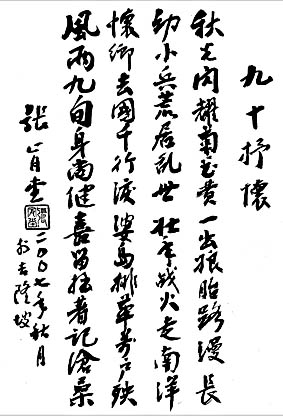 九十抒懷
秋光閃耀菊花黃一出娘胎路漫長
幼小兵荒居乱世壯年战火走南洋
懷鄉去國千行淚婆島排華萬戶殃
風雨九旬身尚健喜留拙著記滄桑
張肖
二〇〇七年秋月
於吉隆坡